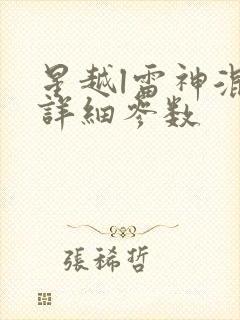 星越l雷神混
詳細参数
張稀哲